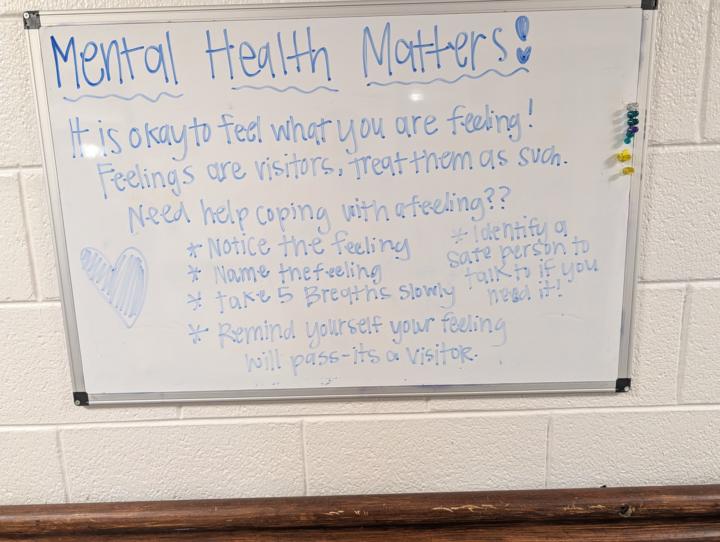 Mental Health Matters!
It is okay to feel what you are feeling!
Feelings are visitors, treat them as such.
Need help coping with a feeling??
* Notice the feeling
* Name the feeling
* take 5 Breaths slowly
* Remind yourself your feeling
will pass-its a visitor.
* Identify a
safe person to
talk to if you
need it!